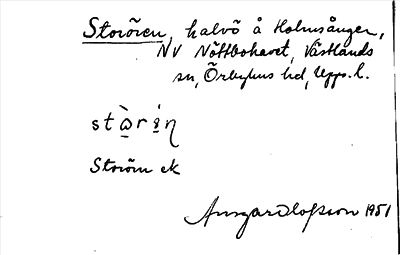 Storören, halvö å Holmsånger,
NV Nöttbohavet, Västlands
sn, Örbyhus hd, Upps. l.
stὼrìn
Storörn ek
Ansgar Olofsson 1951